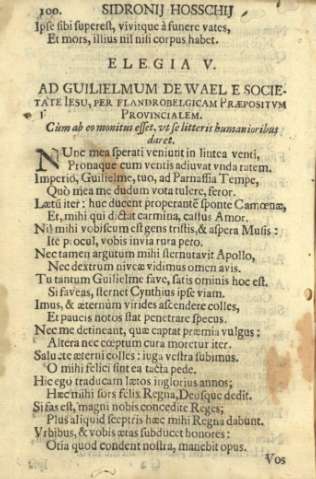 100. SIDRONIJ HOSSCHIJ
Ipse sibi superest, vivitque à funere vates,
Et mors, illius nil nisi corpus habet.
ELEGIA V.
AD GUILIELMUM DE WAEL E SOCIE-
TATE IESU, PER FLANDROBELGICAM PRÆPOSITVM
PROVINCIALEM.
Cùm ab eo monitus esset, vt se litteris humanioribus
daret.
NUnc mea sperati veniunt in littora venti,
Pronaque cum ventis adiuvat vnda ratem.
Imperió, Guilielme, tuo, ad Parnassia Tempe,
Quò mea me dudum vota tulere, feror.
Lætũ iter: huc ducent properantē sponte Camœnæ,
Et, mihi qui dictat carmina, castus Amor.
Nil mihi vobiscum est gens tristis, & aspera Musis:
Ite procul, vobis invia rura pero.
Nec tamen argutum mihi sternutavit Apollo,
Nec dextrum niveæ vidimus omen avis.
Tu tantum Guilielme fave, satis ominis hoc est.
Si faveas, sternet Cynthius ipse viam.
Imus, & æternùm virides ascendere colles,
Et paucis notos stat penetrare specus.
Nec me detineant, quæ captat præmia vulgus:
Altera nec cœptum cura moretur iter.
Salvete æterni colles: iuga vestra subimus.
O mihi felici sint ea tacta pede.
Hic ego traducam lætos inglorius annos;
Hæc mihi sors felix Regna, Deosque dedit.
Si fas est, magni nobis concedite Reges;
Plus aliquid sceptris hæc mihi Regna dabunt.
Vrbibus, & vobis ætas subducet honores:
Otia quod condent nostra, manebit opus.
Vos